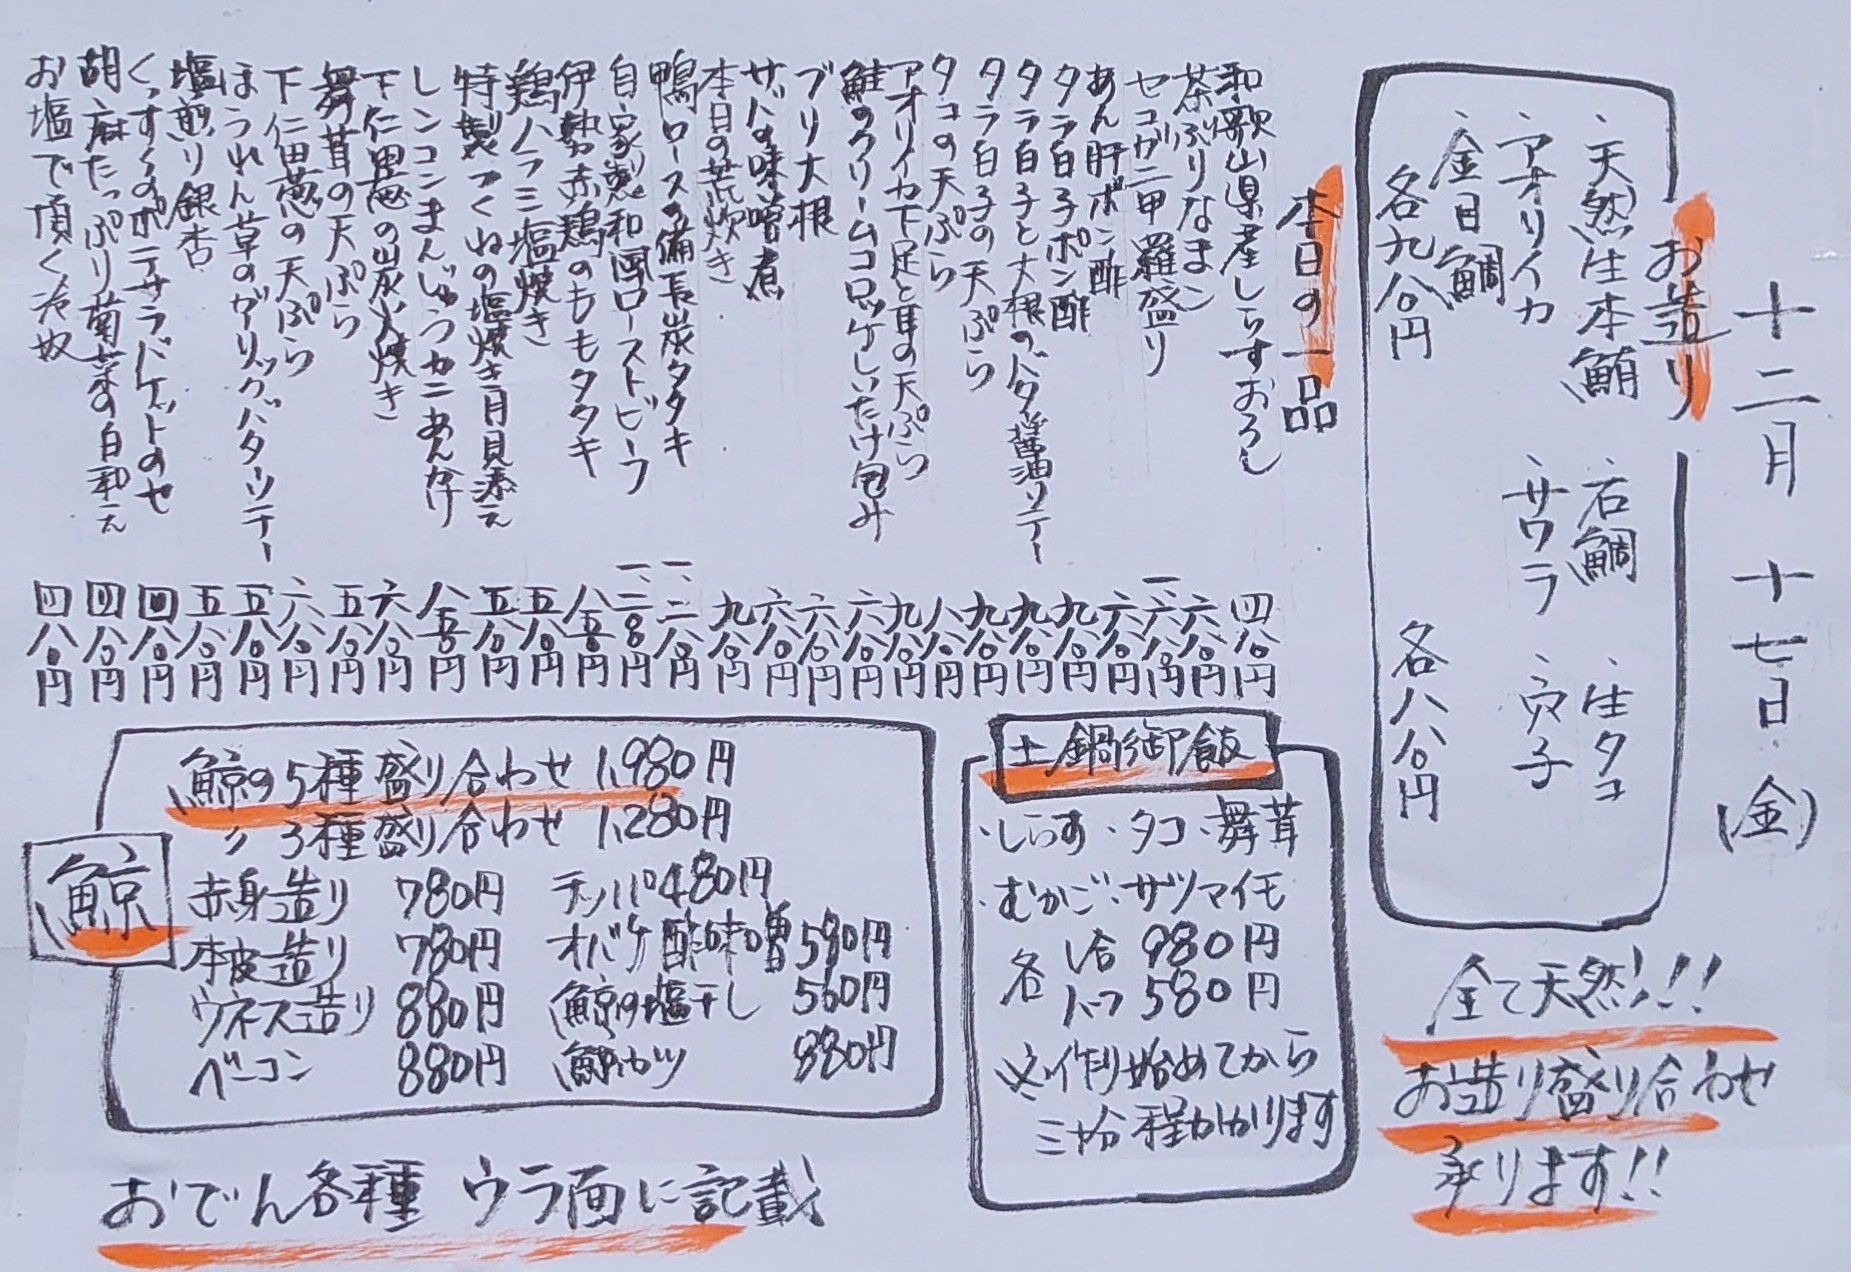 十二月十七日(金)
お造り
・天然生本鮪
・石鯛
・生タコ
・アオリイカ
・サワラ
・穴子
・金目鯛
各九八〇円
各八八〇円
全て天然!!
お造り盛り合わせ
承ります!!
本日の一品
和歌山県産しらすおろし 四八〇円
茶ぶりなまこ 六八〇円
セコガニ甲羅盛り 一、六八〇円
あん肝ポン酢 六八〇円
タラ白子ポン酢 九八〇円
タラ白子と大根のバタ醤油ソテー 九八〇円
タラ白子の天ぷら 九八〇円
タコの天ぷら 八八〇円
アオリイカ下足と耳の天ぷら 九八〇円
鮭のクリームコロッケしいたけ包み 六八〇円
ブリ大根 六八〇円
サバの味噌煮 六八〇円
本日の荒炊き 九八〇円
鴨ロースの備長炭タタキ 一、二八〇円
自家製和風ローストビーフ 一、二八〇円
伊勢赤鶏のももタタキ 八五〇円
鶏ハラミ塩焼き 五八〇円
特製つくねの塩焼き月見添え 五八〇円
レンコンまんじゅうカニあんかけ 八五〇円
下仁田葱の炭火焼き 六八〇円
舞茸の天ぷら 五八〇円
下仁田葱の天ぷら 六八〇円
ほうれん草のガーリックバターソテー 五八〇円
塩煎り銀杏 五八〇円
くんすくのポテサラバゲットのせ 四八〇円
胡麻たっぷり菊菜の白和え 四八〇円
お塩で頂く冷奴 四八〇円
土鍋御飯
・しらす・タコ・舞茸
・むかご・サツマイモ
各 1合 980円
ハーフ 580円
※作り始めてから
三十分程かかります
鯨
鯨の5種盛り合わせ 1,980円
〃 3種盛り合わせ 1,280円
赤身造り 780円 テッパ 480円
本皮造り 780円 オバケ酢味噌 580円
ウネス造り 880円 鯨の塩干し 560円
ベーコン 880円 鯨カツ 880円
おでん各種 ウラ面に記載